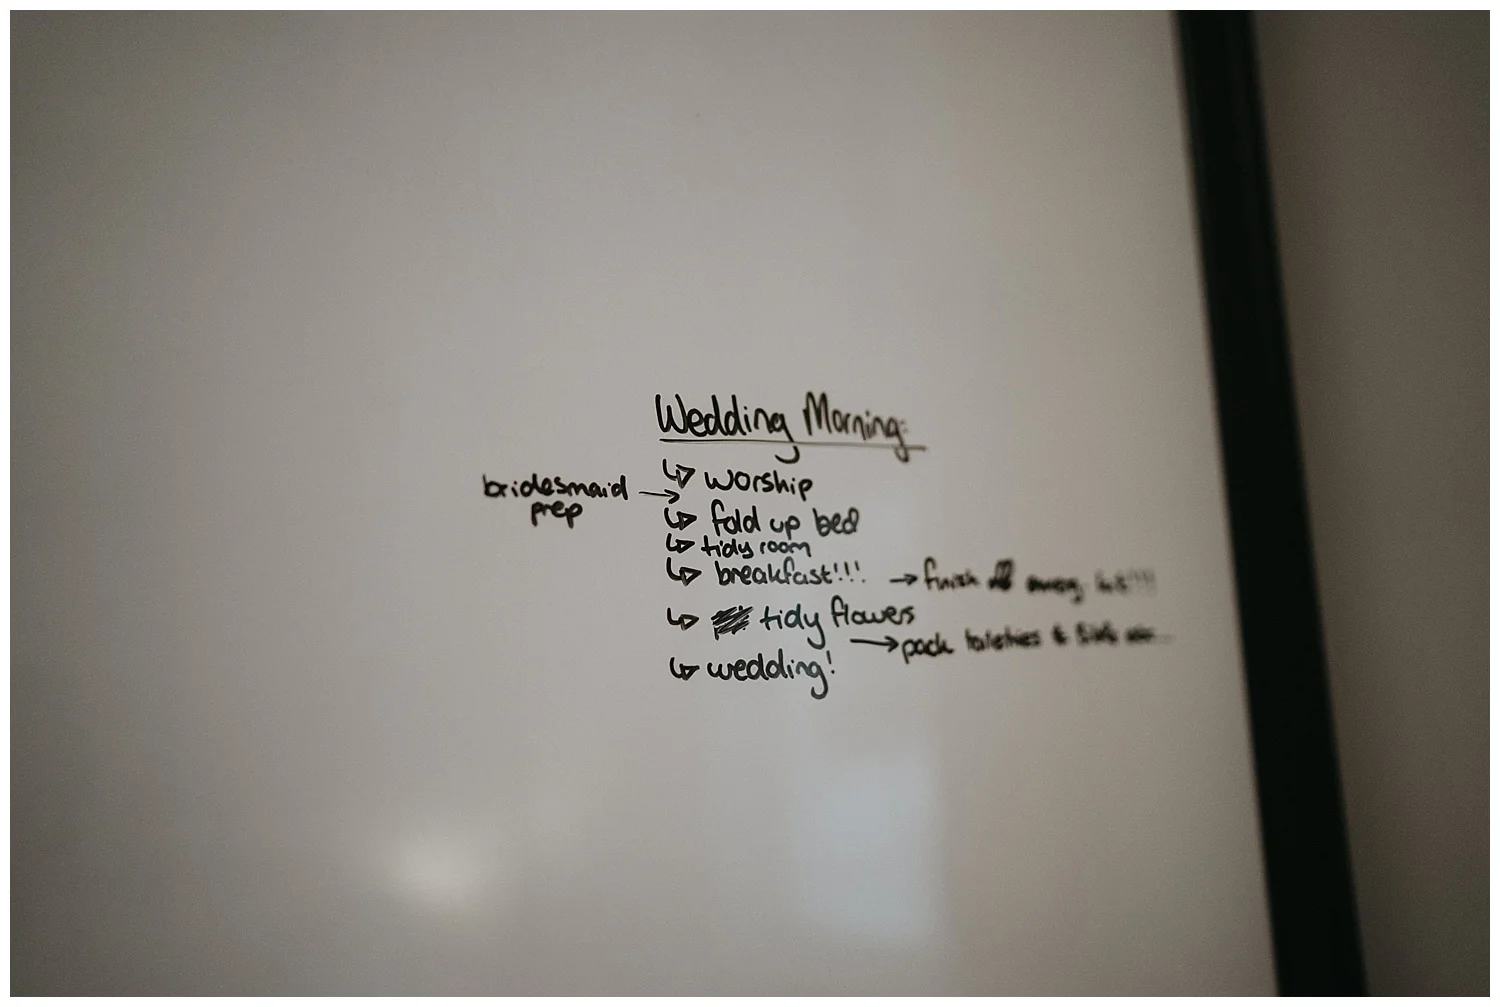 Wedding Morning:
worship
bridesmaid
prep
fold up bed
tidy room
breakfast!!! → finish off
tidy flowers
→ pack toiletries &
wedding!